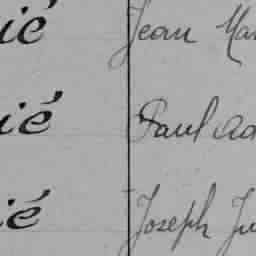 ié Jean Mar
ié Paul Ad
ié Joseph Ju